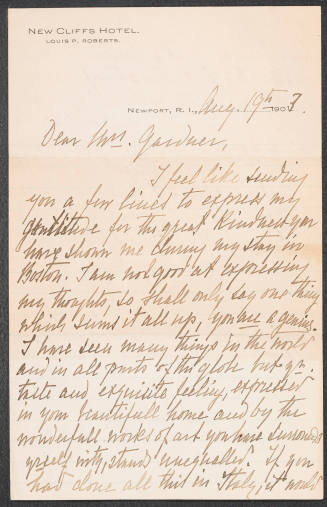 NEW CLIFFS HOTEL.
LOUIS P. ROBERTS.
NEWPORT, R. I., Aug. 19th 1903.
Dear Mrs. Gardner,
I feel like sending
you a few lines to express my
gratitude for the great kindness you
have shown me during my stay in
Boston. I am not good at expressing
my thoughts, so shall only say one thing
which sums it all up, you are a genius.
I have seen many things in the world
and in all parts of the globe but yr.
taste and exquisite feeling, expressed
in your beautifull home and by the
wonderfull works of art you have surrounded
yrself with, stands unequalled. If you
had done all this in Italy, it would